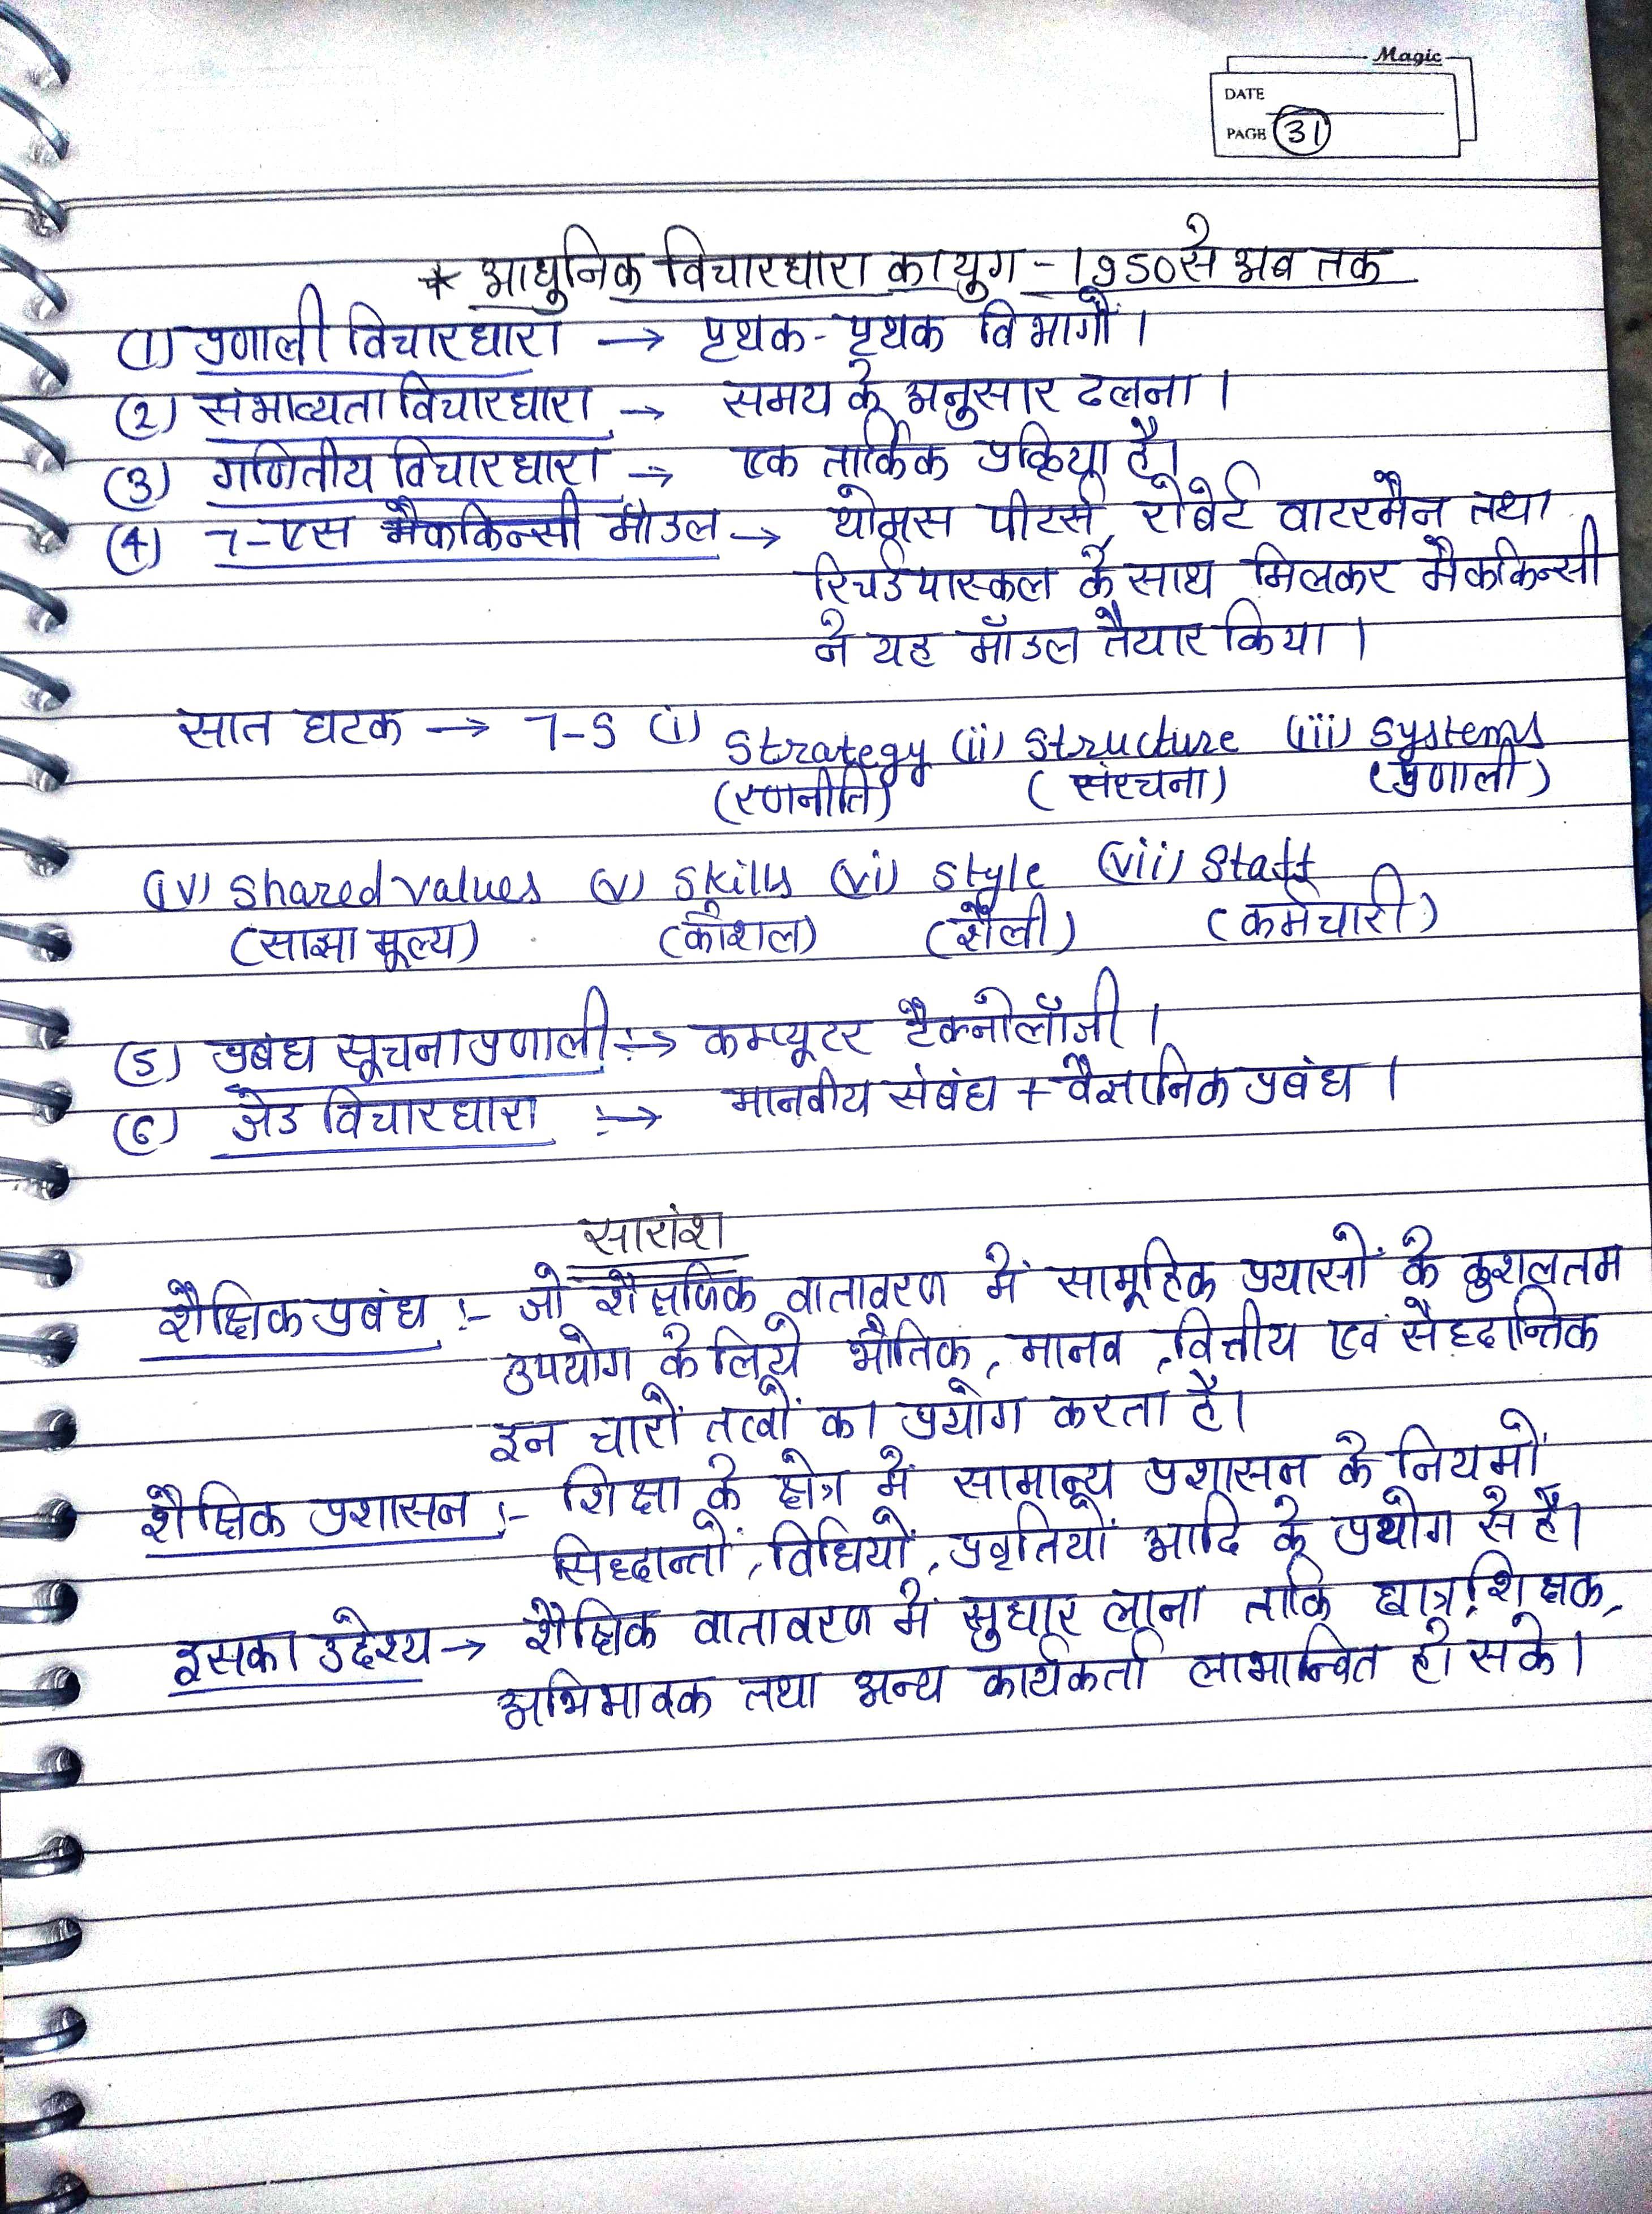 Magic
DATE
PAGE 31
* आधुनिक विचारधारा का युग - 1950 से अब तक
(1) प्रणाली विचारधारा → पृथक-पृथक विभागों।
(2) संभाव्यता विचारधारा → समय के अनुसार ढलना।
(3) गणितीय विचारधारा → एक तार्किक प्रक्रिया है।
(4) 7-एस मैककिन्सी मॉडल → थोमस पीटर्स, रोबेर्ट वाटरमैन तथा
रिचर्ड पास्कल के साथ मिलकर मैककिन्सी
ने यह मॉडल तैयार किया।
सात घटक → 7-S (i) Strategy (ii) Structure (iii) Systems
(रणनीति) (संरचना) (प्रणाली)
(iv) Shared values (v) Skills (vi) Style (vii) Staff
(साझा मूल्य) (कौशल) (शैली) (कर्मचारी)
(5) प्रबंध सूचना प्रणाली :→ कम्प्यूटर टैक्नोलॉजी।
(6) जेड विचारधारा :→ मानवीय संबंध + वैज्ञानिक प्रबंध।
सारांश
शैक्षिक प्रबंध :- जो शैक्षणिक वातावरण में सामूहिक प्रयासों के कुशलतम
उपयोग के लिये भौतिक, मानव, वित्तीय एवं सैद्दान्तिक
इन चारों तत्वों का प्रयोग करता है।
शैक्षिक प्रशासन :- शिक्षा के क्षेत्र में सामान्य प्रशासन के नियमों,
सिद्दान्तों, विधियों, प्रवृतियों आदि के प्रयोग से है।
इसका उद्देश्य → शैक्षिक वातावरण में सुधार लाना ताकि छात्र, शिक्षक,
अभिभावक तथा अन्य कार्यकर्ता लाभान्वित हो सके।